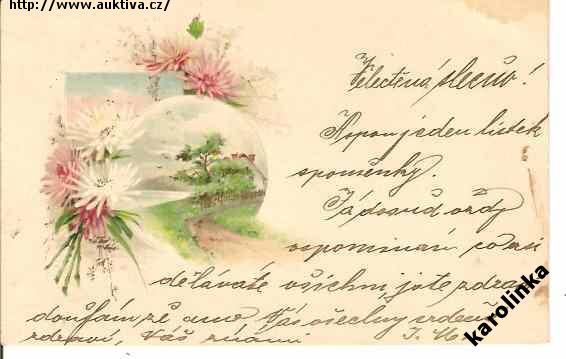 http://www.auktiva.cz/
Velectěná slečno!
Aspoň jeden lístek
spoměnky.
Já dosud vždy
vspomínám co asi
děláváte všichni, jste zdrav
doufám že ano. Vás všechny srdečně
zdraví, Váš známi J. H.
karolinka